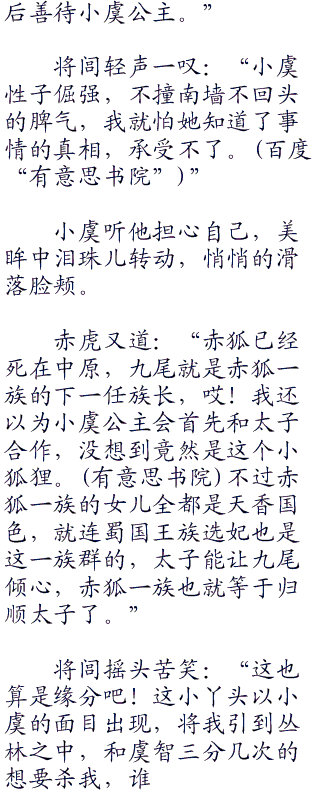 后善待小虞公主。”
将闾轻声一叹：“小虞
性子倔强，不撞南墙不回头
的脾气，我就怕她知道了事
情的真相，承受不了。(百度
“有意思书院”)”
小虞听他担心自己，美
眸中泪珠儿转动，悄悄的滑
落脸颊。
赤虎又道：“赤狐已经
死在中原，九尾就是赤狐一
族的下一任族长，哎！我还
以为小虞公主会首先和太子
合作，没想到竟然是这个小
狐狸。(有意思书院)不过赤
狐一族的女儿全都是天香国
色，就连蜀国王族选妃也是
这一族群的，太子能让九尾
倾心，赤狐一族也就等于归
顺太子了。”
将闾摇头苦笑：“这也
算是缘分吧！这小丫头以小
虞的面目出现，将我引到丛
林之中，和虞智三分几次的
想要杀我，谁